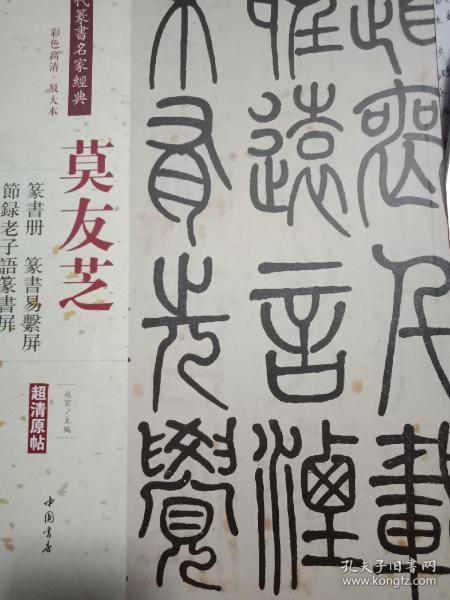 代篆書名家經典
彩色高清·放大本
莫友芝
篆書册 篆書易繫屏
節録老子語篆書屏
超清原帖
趙宏/主編
中国书店
民畫
唯遠言湮
不有先覺
孔夫子旧书网
www.kongfz.com